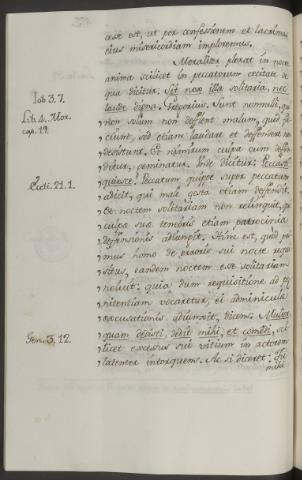 cesse est, ut per confessionem et lacrimas
eius misericordiam imploremus.
Moraliter plorat in nocte
anima scilicet in peccatorum cecitate de
qua dicitur. Sit nox illa solitaria, nec
Iob 3.7.
laude digna. Gregorius. Sunt nonnulli, qui
Lib. 4. Mor.
non solum non deflent malum, quod fa-
cap. 19.
ciunt, sed etiam laudare et defendere non
desistunt. Et nimirum culpa cum defen-
ditur, geminatur. Inde dicitur: Peccasti
Eccli. 21.1.
quiesce. Peccatum quippe super peccatum
adicit, qui male gesta etiam defendit.
Et noctem solitariam non relinquit, qui
culpae suae tenebris etiam patrocinia
defensionis adiungit. Hinc est, quod pri-
mus homo de erroris sui nocte requi-
situs, eandem noctem esse solitariam
noluit: quia dum requisitione ad pe-
nitentiam vocaretur, ei adminicula
excusationis adiunxit, dicens. Mulier
quam dedisti, dedit mihi, et comedi, sci-
Gen. 3. 12.
licet excessus sui vitium in actorem
latenter intorquens. Ac si diceret: Tu
mihi